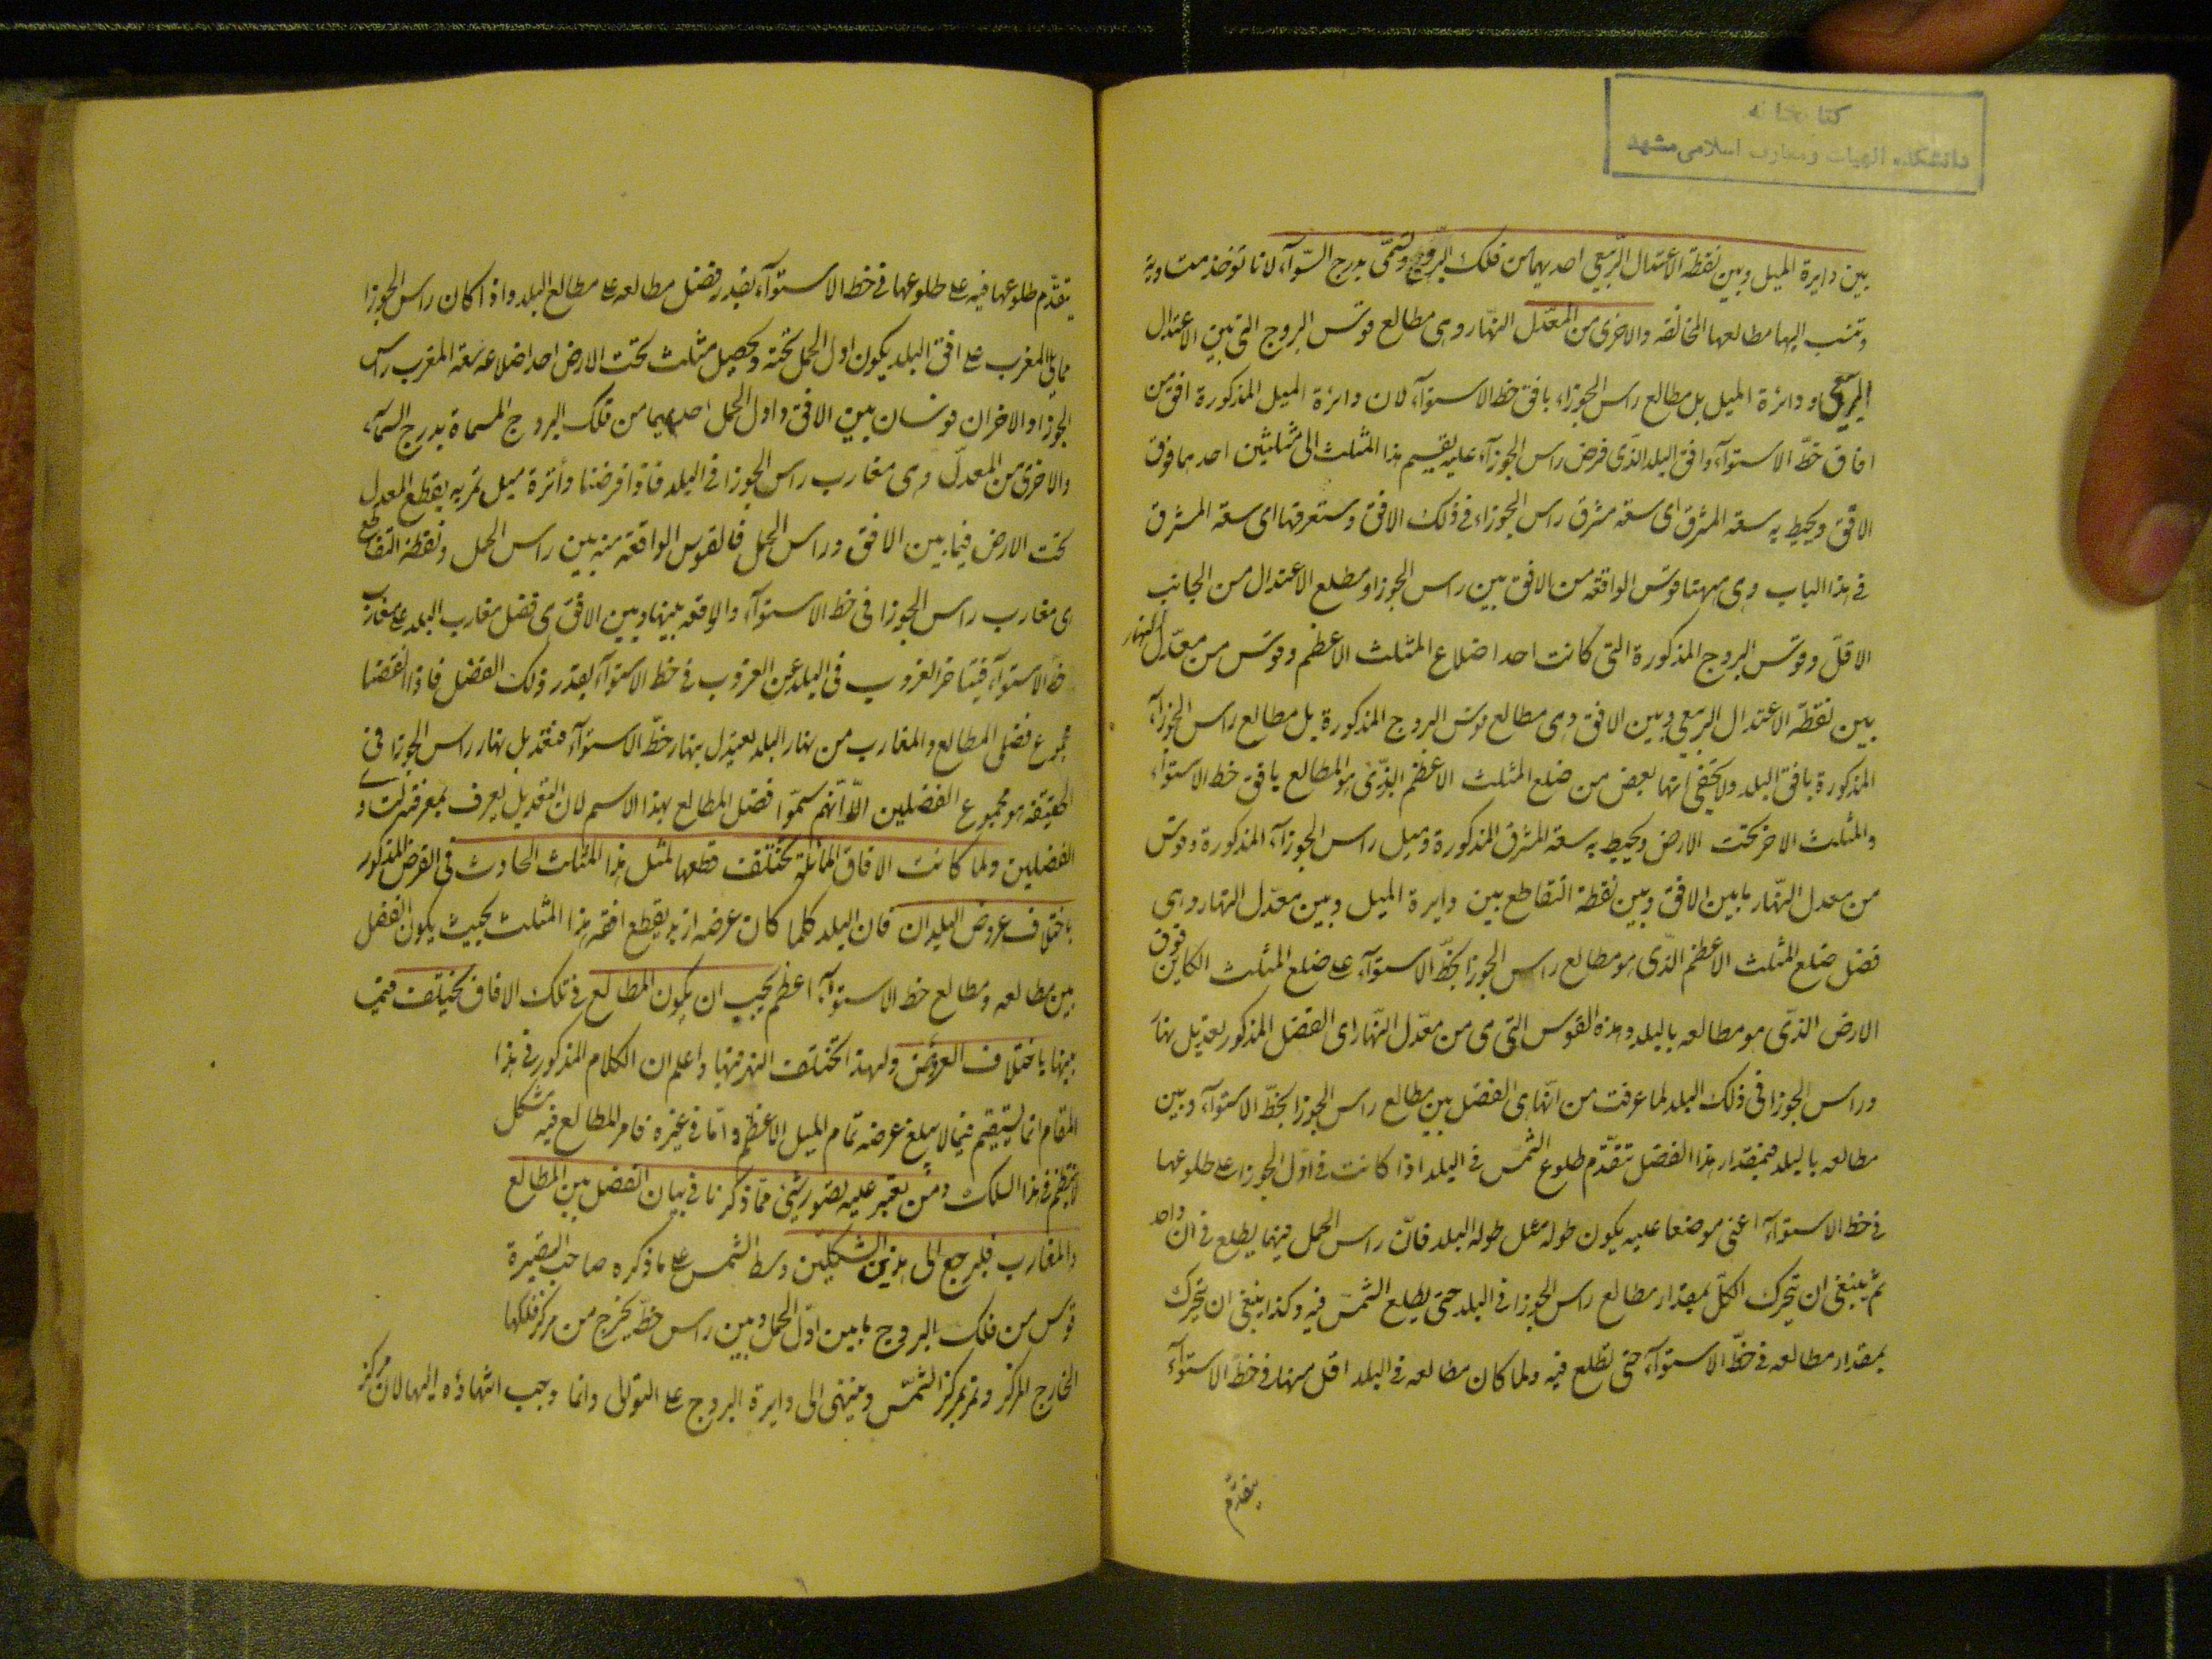 كتابخانه
دانشكده الهيات و معارف اسلامى مشهد
بين دايرة الميل وبين نقطة الاعتدال الربيعى احديهما من فلك البروج وتسمى بدرج السوآء لانا توخذ متساوية
وتنسب اليها مطالعها المخالفه والاخرى من المعدل النهار وهى مطالع قوس البروج التى بين الاعتدال
الربيعى ودائرة الميل بل مطالع راس الجوزاء بافق خط الاستوآء لان دائرة الميل المذكورة افق من
افاق خط الاستوآء وافق البلد الذى فرض راس الجوزآء عليه يقسم هذا المثلث الى مثلثين احدهما فوق
الافق ويحيط به سعة المشرق اى سعة مشرق راس الجوزاء فى ذلك الافق وستعرفها اى سعة المشرق
فى هذا الباب وهى ههنا قوس الواقعه من الافق بين راس الجوزا ومطلع الاعتدال من الجانب
الاقل وقوس البروج المذكورة التى كانت احد اضلاع المثلث الاعظم وقوس من معدل النهار
بين نقطة الاعتدال الربيعى وبين الافق وهى مطالع قوس البروج المذكورة بل مطالع راس الجوزآء
المذكورة بافق البلد ولا يخفى انها بعض من ضلع المثلث الاعظم الذى هو المطالع بافق خط الاستوآء
والمثلث الاخر تحت الارض ويحيط به سعة المشرق المذكورة وميل راس الجوزآء المذكورة وقوس
من معدل النهار ما بين الافق وبين نقطة التقاطع بين دايرة الميل وبين معدل النهار وهى
فضل ضلع المثلث الاعظم الذى هو مطالع راس الجوزا بخط الاستوآء على ضلع المثلث الكاين فوق
الارض الذى هو مطالعه بالبلد وهذه القوس التى هى من معدل النهار اى الفضل المذكور تعديل نها
ر راس الجوزا فى ذلك البلد لما عرفت من انها هى الفضل بين مطالع راس الجوزا بخط الاستوآء وبين
مطالعه بالبلد فبمقدار هذا الفضل تتقدم طلوع الشمس فى البلد اذا كانت فى اول الجوزا على طلوعها
فى خط الاستوآء اعنى موضعا عليه يكون طوله مثل طول البلد فان راس الحمل فيهما يطلع فى ان واحد
ثم ينبغى ان يتحرك الكل بمقدار مطالع راس الجوزا فى البلد حتى يطلع الشمس فيه وكذا ينبغى ان يتحرك
بمقدار مطالعه فى خط الاستوآء حتى تطلع فيه ولما كان مطالعه فى البلد اقل منها فى خط الاستوآء
يتقدم
يتقدم طلوعها فيه على طلوعها فى خط الاستوآء بقدر فضل مطالعه على مطالع البلد واذا كان راس الجوزا
مما يلى المغرب على افق البلد يكون اول الحمل تحته ويحصل مثلث تحت الارض احد اضلاعه سعة المغرب راس
الجوزا والاخران قوسان بين الافق واول الحمل احديهما من فلك البروج المسماة بدرج السوآء
والاخرى من المعدل وهى مغارب راس الجوزا فى البلد فاذا فرضنا دائرة ميل تمر به يقطع المعدل
تحت الارض فيما بين الافق وراس الحمل فالقوس الواقعة منه بين راس الحمل ونقطة التقاطع
هى مغارب راس الجوزا فى خط الاستوآء والواقعه بينها وبين الافق هى فضل مغارب البلد على مغارب
خط الاستوآء فيتاخر الغروب فى البلد عن الغروب فى خط الاستوآء بقدر ذلك الفضل فاذا انقصنا
مجموع فضلى المطالع والمغارب من نهار البلد يعتدل بنهار خط الاستوآء فتعديل نهار راس الجوزا فى
الحقيقة هو مجموع الفضلين الا انهم سموا فضل المطالع بهذا الاسم لان التعديل يعرف بمعرفته لتساوى
الفضلين ولما كانت الافاق المائلة تختلف قطعها لمثل هذا المثلث الحادث فى الفرض المذكور
باختلاف عروض البلدان فان البلد كلما كان عرضه ازيد يقطع افقه هذا المثلث بحيث يكون الفضل
بين مطالعه ومطالع خط الاستوآء اعظم يجب ان يكون المطالع فى تلك الافاق تختلف فيما
بينها باختلاف العروض ولهذا تختلف النهر فيها واعلم ان الكلام المذكور فى هذا
المقام انما يستقيم فيما لا يبلغ عرضه تمام الميل الاعظم واما فى غيره فامر المطالع فيه مشكل
لا ينتظم فى هذا السلك ومن تعسر عليه تصور شئ مما ذكرنا فى بيان الفضل بين المطالع
والمغارب فليرجع الى هذين الشكلين وسط الشمس على ما ذكره صاحب التبصرة
قوس من فلك البروج ما بين اول الحمل وبين راس خط يخرج من مركز فلكها
الخارج المركز وتمر بمركز الشمس وينتهى الى دايرة البروج على التوالى وانما وجب انتهاؤه اليها لان مركز